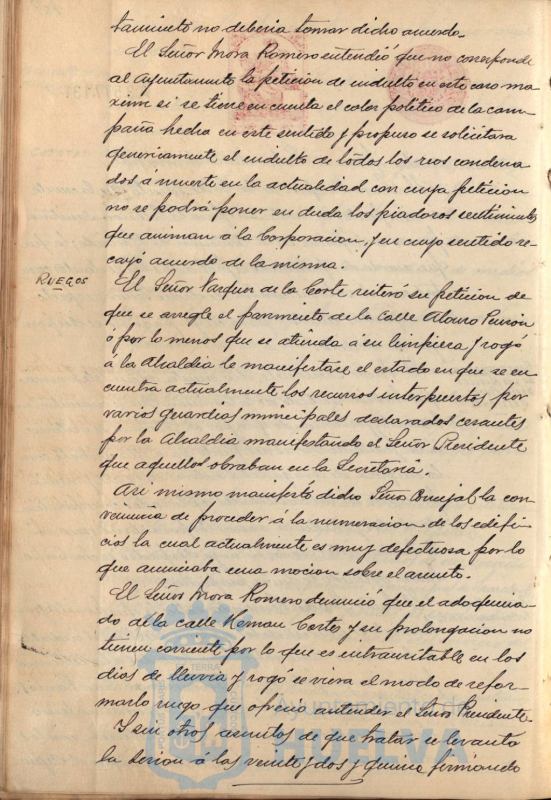 tamiento no deberia tomar dicho acuerdo.
El Señor Mora Romero entendió que no corresponde
al Ayuntamiento la peticion de indulto en este caso ma-
xime si se tiene en cuenta el color político de la cam-
paña hecha en este sentido y propuso se solicitara
genericamente el indulto de todos los reos condena
dos á muerte en la actualidad con cuya peticion
no se podrá poner en duda los piadosos sentimientos
que animan á la Corporacion, y en cuyo sentido re-
cayó acuerdo de la misma.
RUEGOS
El Señor Vazquez de la Corte reiteró su peticion de
que se arregle el pavimento de la calle Alonso Pinzón
ó por lo menos que se atienda a su limpieza y rogó
á la Alcaldia le manifestase el estado en que se en
cuentra actualmente los recursos interpuestos por
varios guardias municipales declarados cesantes
por la Alcaldia manifestando el Señor Presidente
que aquellos obraban en la Secretaria.
Asi mismo manifestó dicho Señor Concejal la con
veniencia de proceder á la numeracion de los edifi
cios la cual actualmente es muy defectuosa por lo
que anunciaba una mocion sobre el asunto.
El Señor Mora Romero denunció que el adoquina-
do de la calle Hernan Cortes y su prolongacion no
tienen corriente por lo que es intransitable en los
dias de lluvia y rogó se viera el modo de refor-
marlo ruego que ofrecio atender el Señor Presidente.
Y sin otros asuntos de que tratar se levanto
la sesion a las veinte y dos y quince firmando
Ayuntamiento de
HUELVA